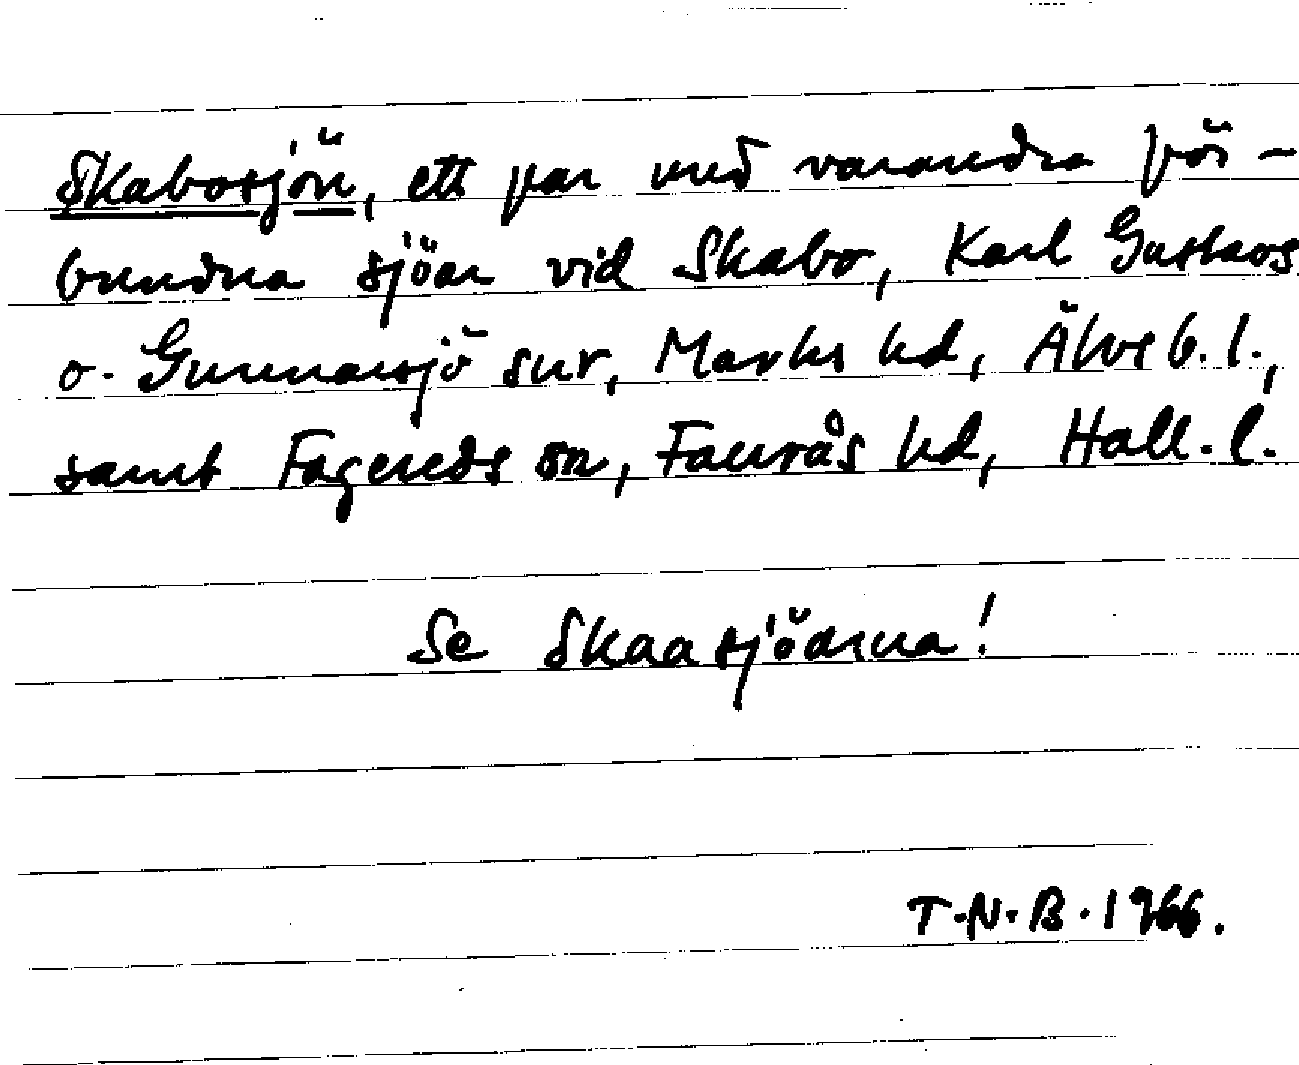 Skabosjön, ett par med varandra för-
bundna sjöar vid Skabo, Karl Gustavs
o. Gunnarsjö snr, Marks hd, Älvsb. l.,
samt Fagereds sn, Faurås hd, Hall. l.
Se Skaasjöarna!
T.N.B. 1966.